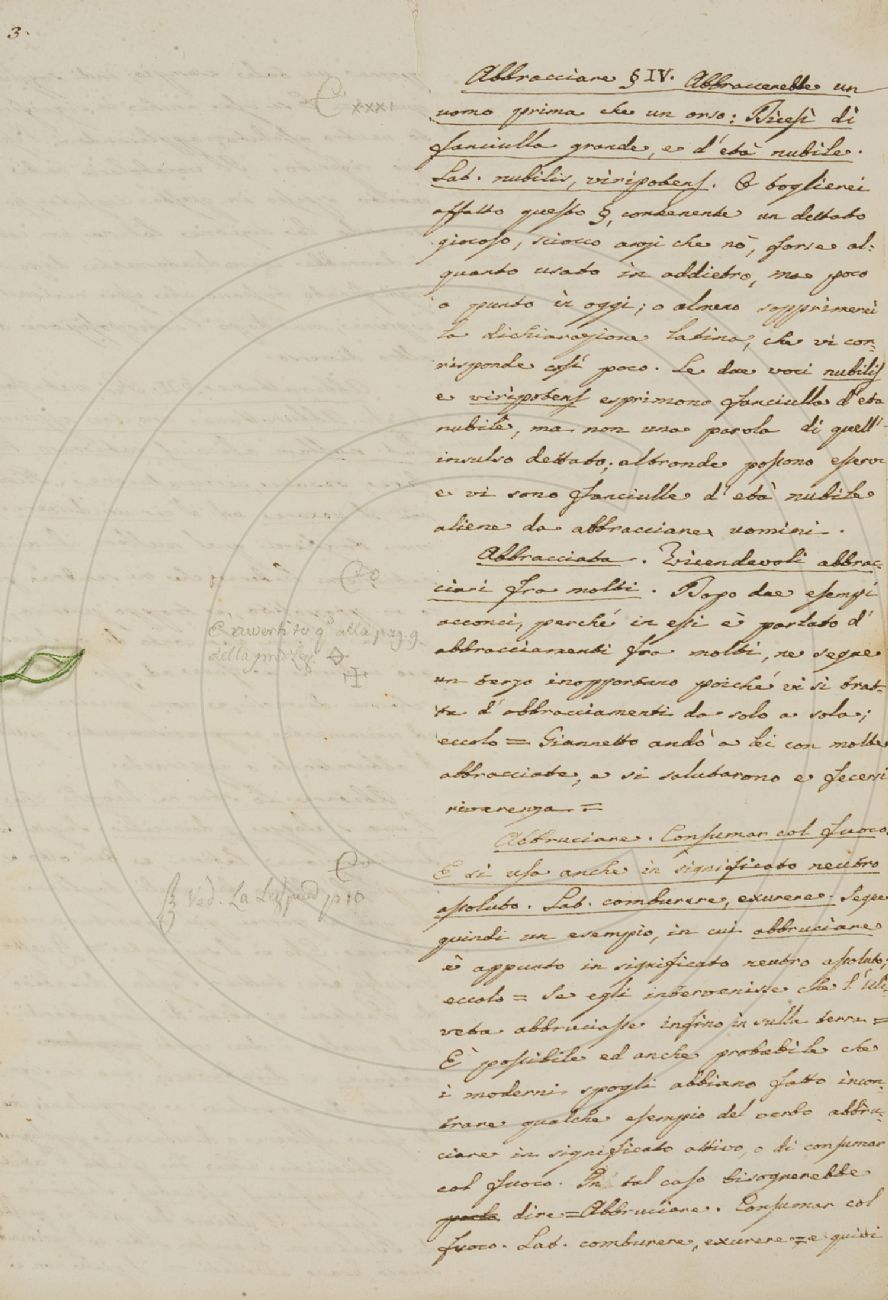 3.
Abbracciare § IV. Abbraccerebbe un
uomo prima che un orso: Dicesi di
fanciulla grande, e d'età nubile.
Lat. nubilis, viripotens. Io toglierei
affatto questo §, contenente un dettato
giocoso, sciocco anzi che nò, forse al:
quanto usato in addietro, ma poco
o punto in oggi; o almeno sopprimerei
la dichiarazione latina, che vi cor:
risponde così poco. Le due voci nubilis
e viripotens esprimono fanciulla d'età
nubile, ma non una parola di quell'
insulso dettato; altronde possono esservi
e vi sono fanciulle d'età nubile
aliene da abbracciare uomini.
Abbracciata. Vicendevoli abbrac:
ciari fra molti. Dopo due esempi
acconci, perché in essi è parlato d'
abbracciamenti fra molti, ne segue
un terzo inopportuno poiché vi si trat:
ta d'abbracciamenti da solo a sola;
eccolo = Giannetto andò a lei con molte
abbracciate, e si salutarono e fecersi
riverenza =
Abbruciare. Consumar col fuoco.
E si usa anche in significato neutro
assoluto. Lat. comburere, exurere. Segue
quindi un esempio, in cui abbruciare
è appunto in significato neutro assoluto;
eccolo = Se egli intervenisse che l'uli:
veta abbruciasse infino in sulla terra =
È possibile ed anche probabile che
i moderni spogli abbiano fatto incon:
trare qualche esempio del verbo abbru:
ciare in significato attivo, o di consumar
col fuoco. In tal caso bisognerebbe
dire = Abbruciare. Consumar col
fuoco. Lat. comburere, exurere = e quivi
XXXI
alla pag. 9
della
Ved. La
p 10